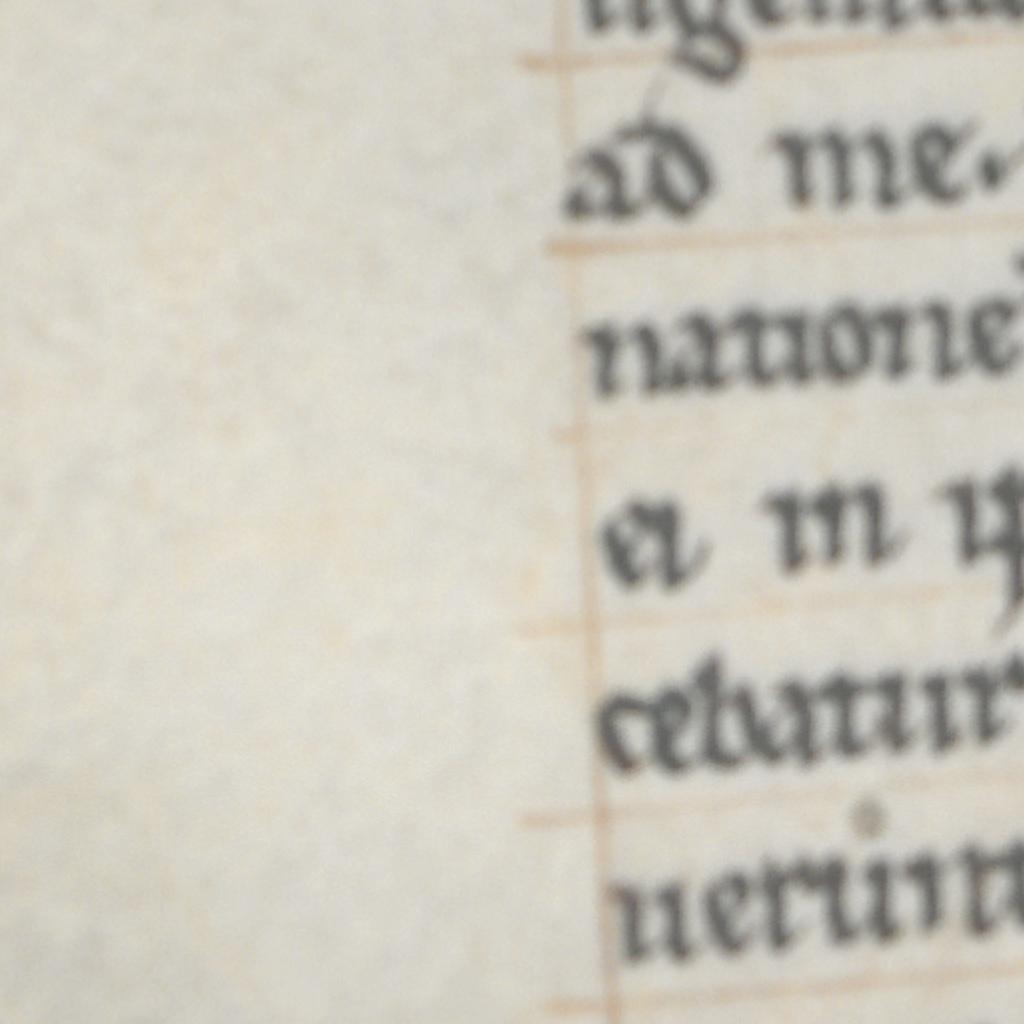 ad me.
natione
ei in ip
cebatur
uerunt